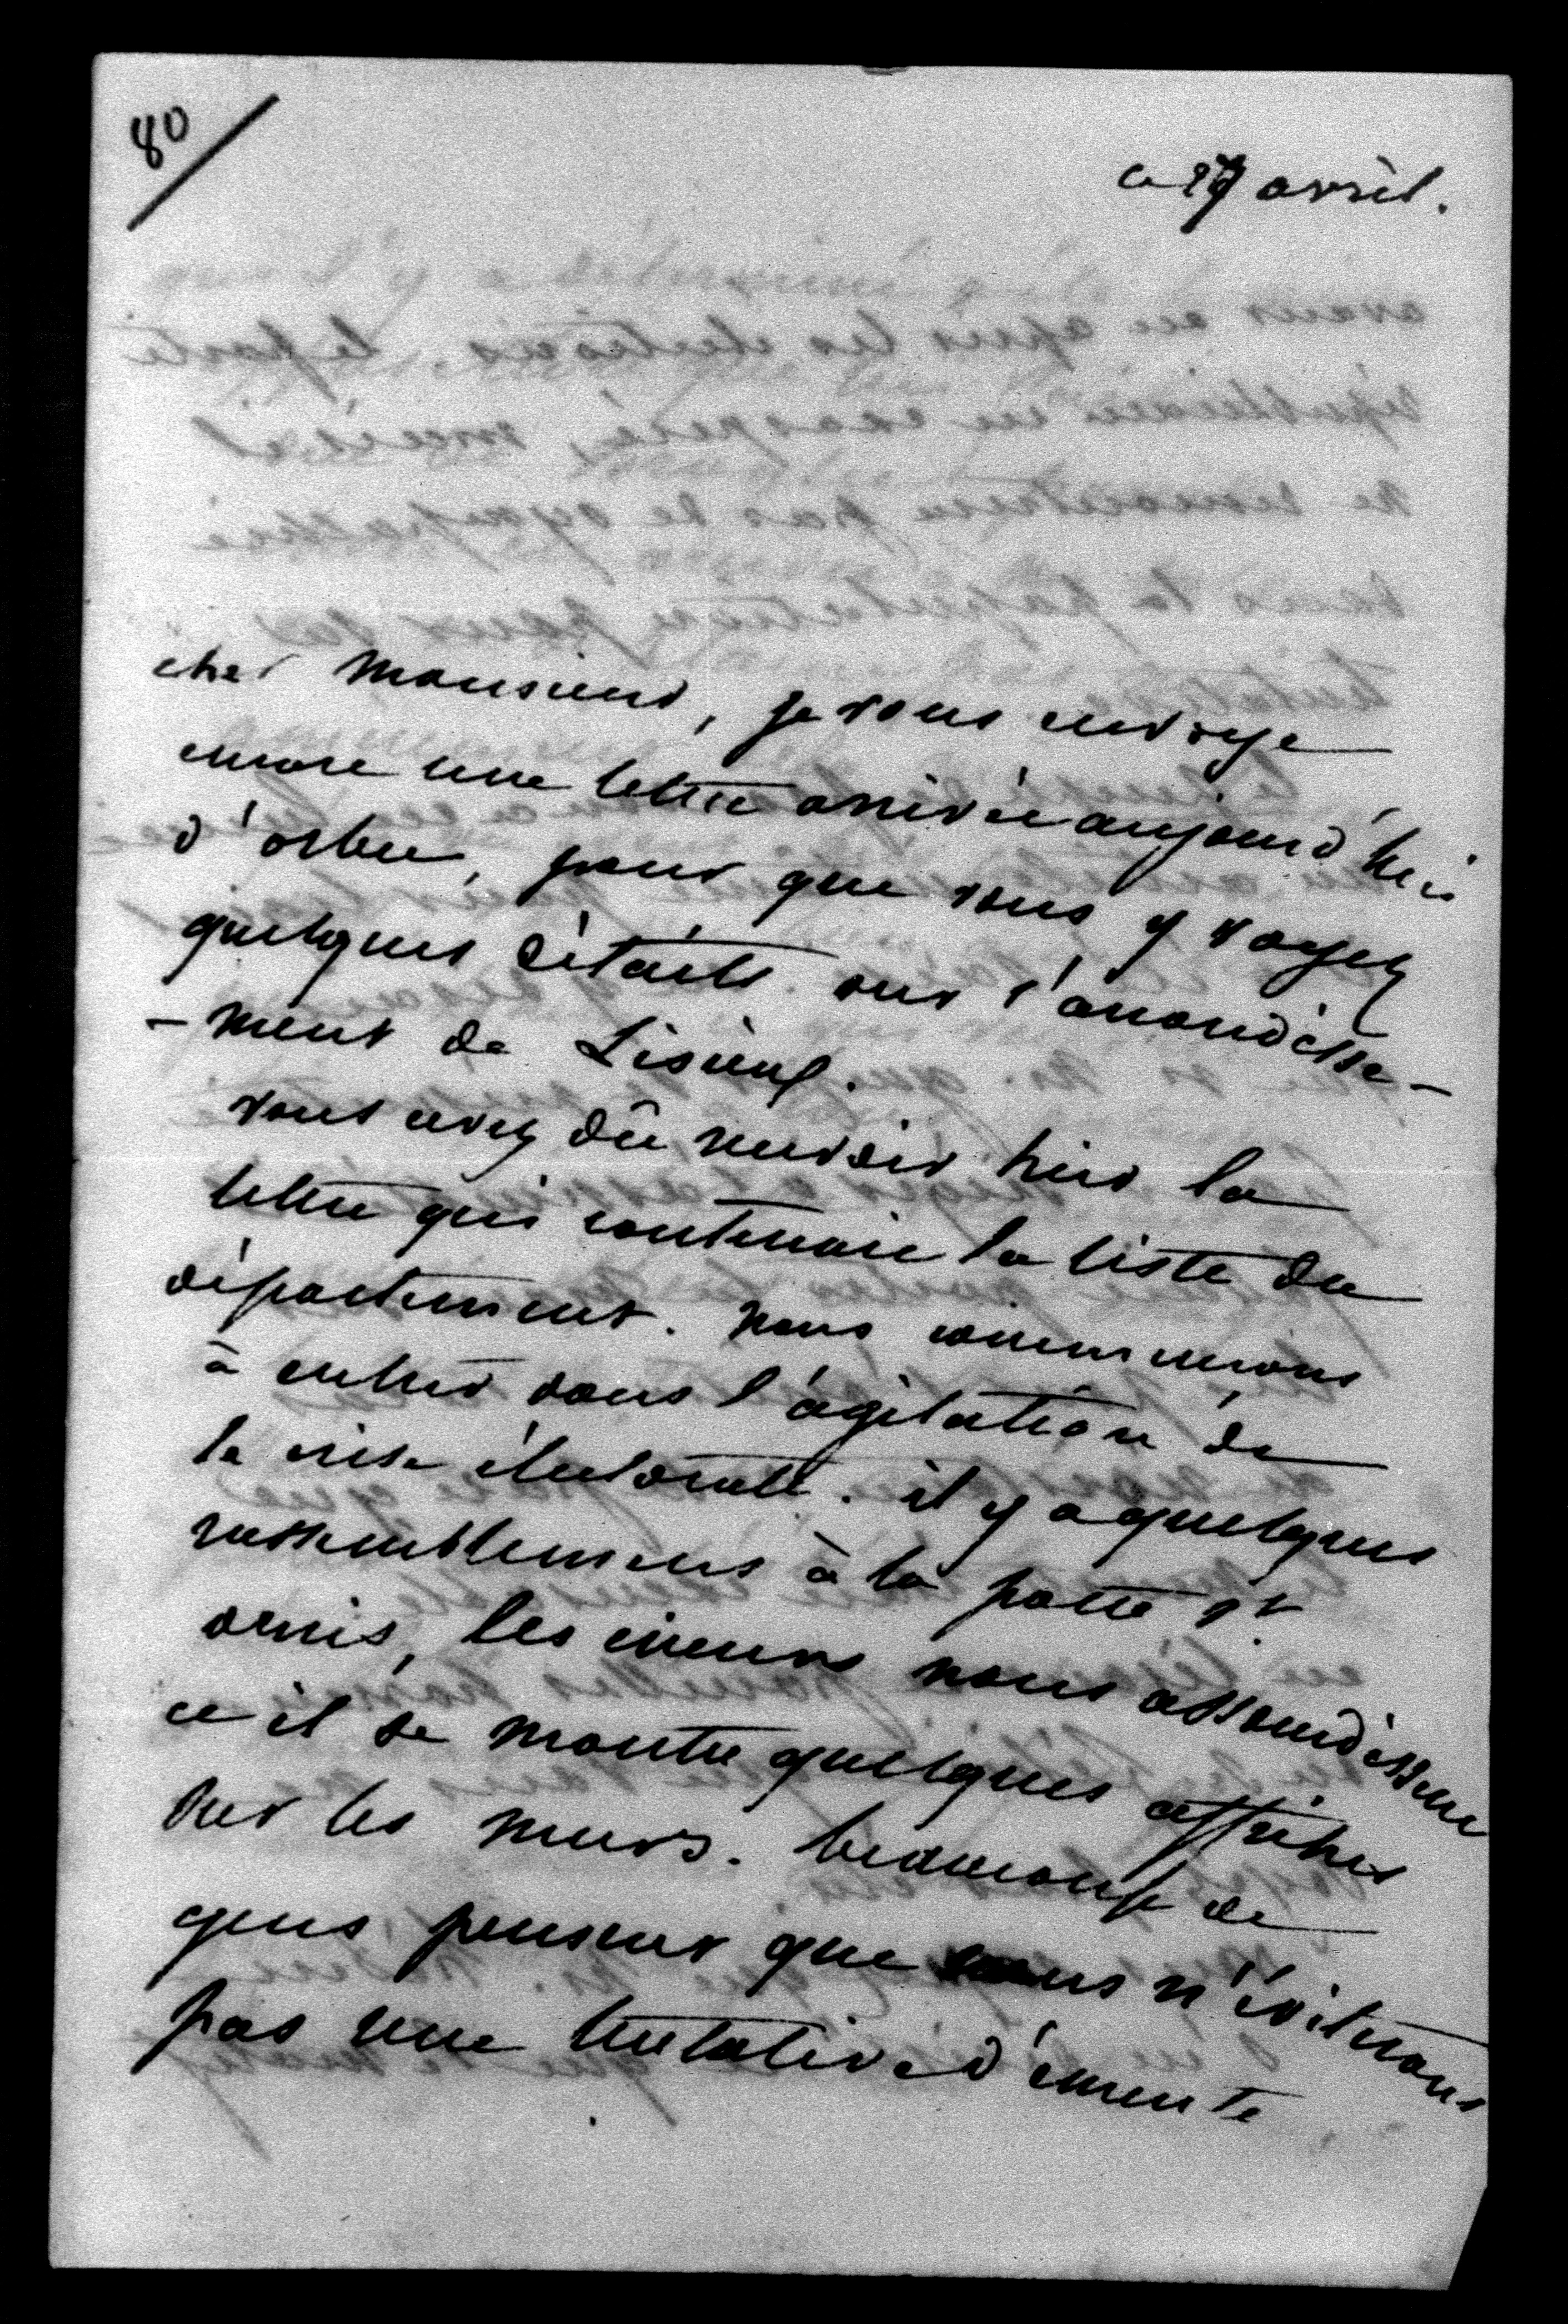 80
ce 27 avril.
cher Monsieur, je vous envoye
encore une lettre arrivée aujourd'hui
d'orbec, pour que vous y voyez
quelques détails sur l'arrondisse-
-ment de Lisieux.
vous avez dû recevoir hier la
lettre qui contenait la liste du
département. nous commencons
à entrer dans l'agitation de
la crise électorale. il y a quelques
rassemblemens à la porte St
denis, les crieurs nous assourdissent
et il se montre quelques affiches
sur les murs. beaucoup de
gens pensent que nous n'éviterons
pas une tentative d'émeute